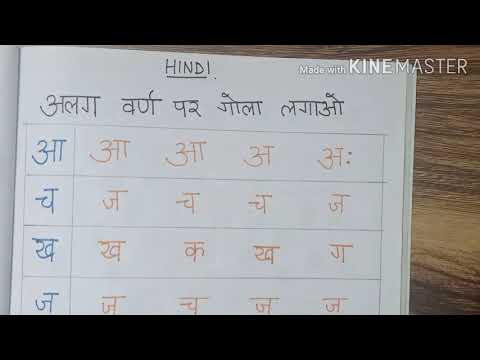 HINDI.
Made with KINEMASTER
अलग वर्ण पर गोला लगाओ
आ आ आ अ अः
च ज च च ज
ख ख क ख ग
ज ज च ज ज